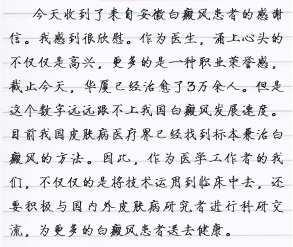 今天收到了来自安徽白癜风患者的感谢
信。我感到很欣慰。作为医生，涌上心头的
不仅仅是高兴，更多的是一种职业荣誉感，
截止今天，华厦已经治愈了3万余人。但是
这个数字远远跟不上我国白癜风发展速度。
目前我国皮肤病医疗界已经找到标本兼治白
癜风的方法。因此，作为医学工作者的我
们，不仅仅的是将技术运用到临床中去，还
要积极与国内外皮肤病研究者进行科研交
流，为更多的白癜风患者送去健康。